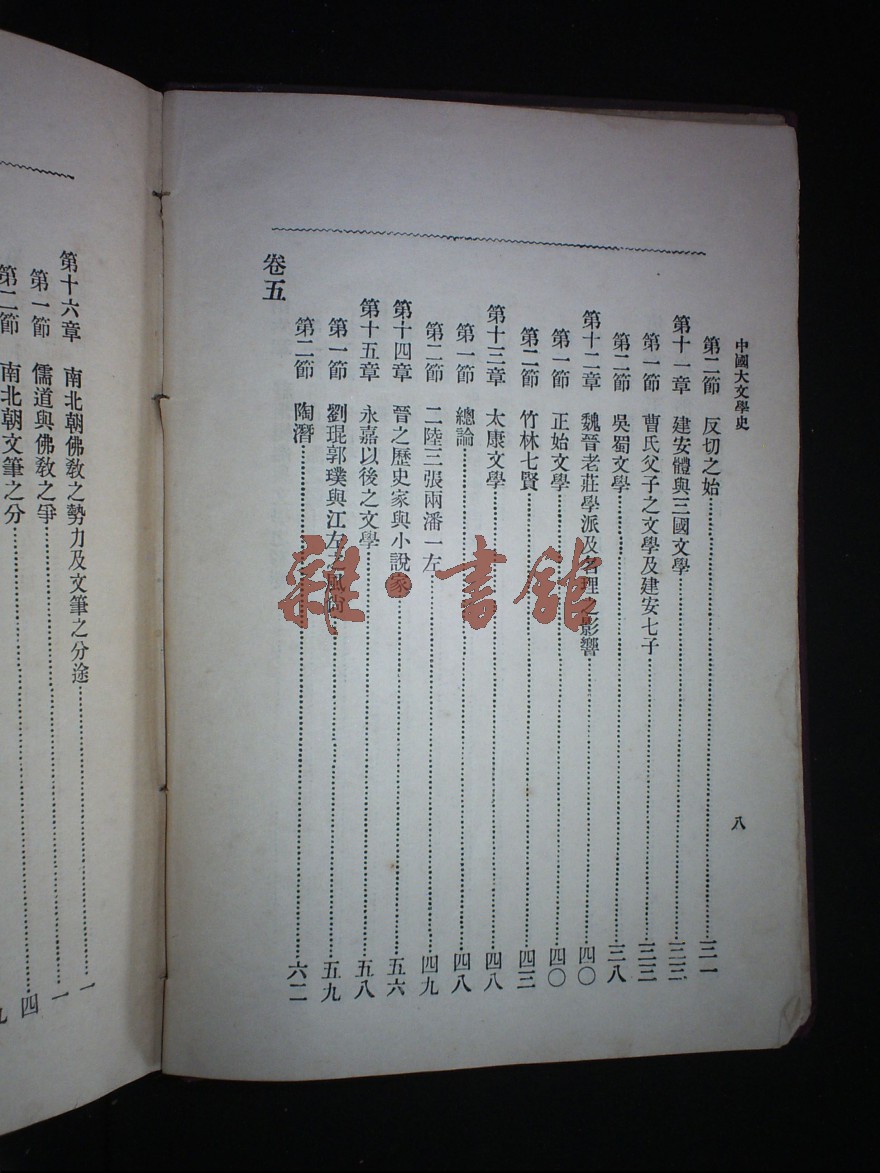 中國大文學史
八
第二節 反切之始……三一
第十一章 建安體與三國文學……三三
第一節 曹氏父子之文學及建安七子……三三
第二節 吳蜀文學……三八
第十二章 魏晉老莊學派及名理之影響……四〇
第一節 正始文學……四〇
第二節 竹林七賢……四三
第十三章 太康文學……四八
第一節 總論……四八
第二節 二陸三張兩潘一左……四九
第十四章 晉之歷史家與小說家……五六
第十五章 永嘉以後之文學……五八
第一節 劉琨郭璞與江左之風尚……五九
第二節 陶潛……六二
卷五
第十六章 南北朝佛教之勢力及文筆之分途……一
第一節 儒道與佛教之爭……一
第二節 南北朝文筆之分……四
九
雜·書館